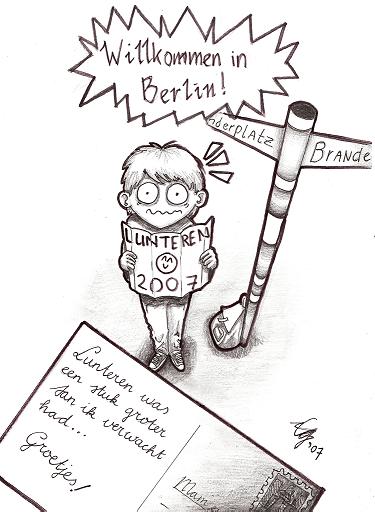 Willkommen in
Berlin!
derplatz
BRANDE
LUNTEREN
2007
Lunteren was
een stuk groter
dan ik verwacht
had...
Groetjes!
Mam
'07